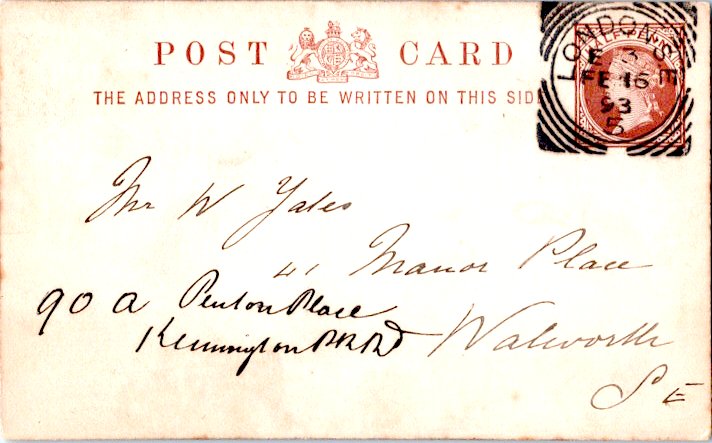 POST CARD
THE ADDRESS ONLY TO BE WRITTEN ON THIS SIDE
LONDON·S·E
E 3
FE 16
93
5
Mr W Yates
41 Manor Place
90 a Penton Place
Kennington Pk Rd
Walworth
S E